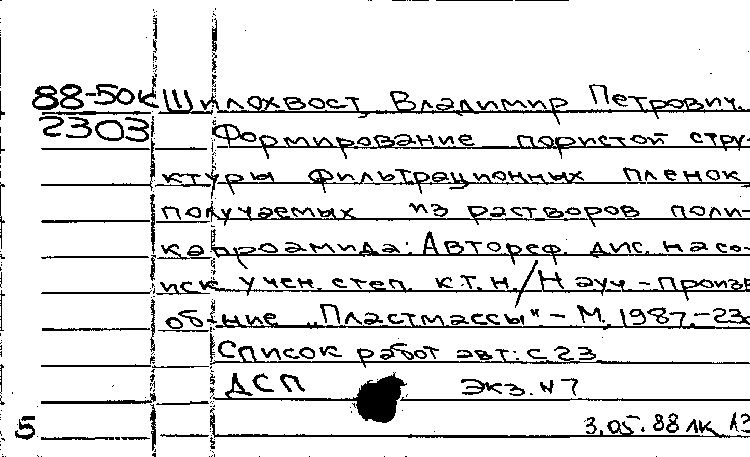 88-50к Шилохвост, Владимир Петрович.
2303 Формирование пористой стру-
ктуры фильтрационных пленок,
получаемых из растворов поли-
капроамида: Автореф. дис. на со-
иск. учен. степ. к.т.н./Науч.-произв
об-ние „Пластмассы“.- М., 1987.-23с
Список работ авт.: с.23
ДСП Экз. N 7
5 3.05.88 ЛК